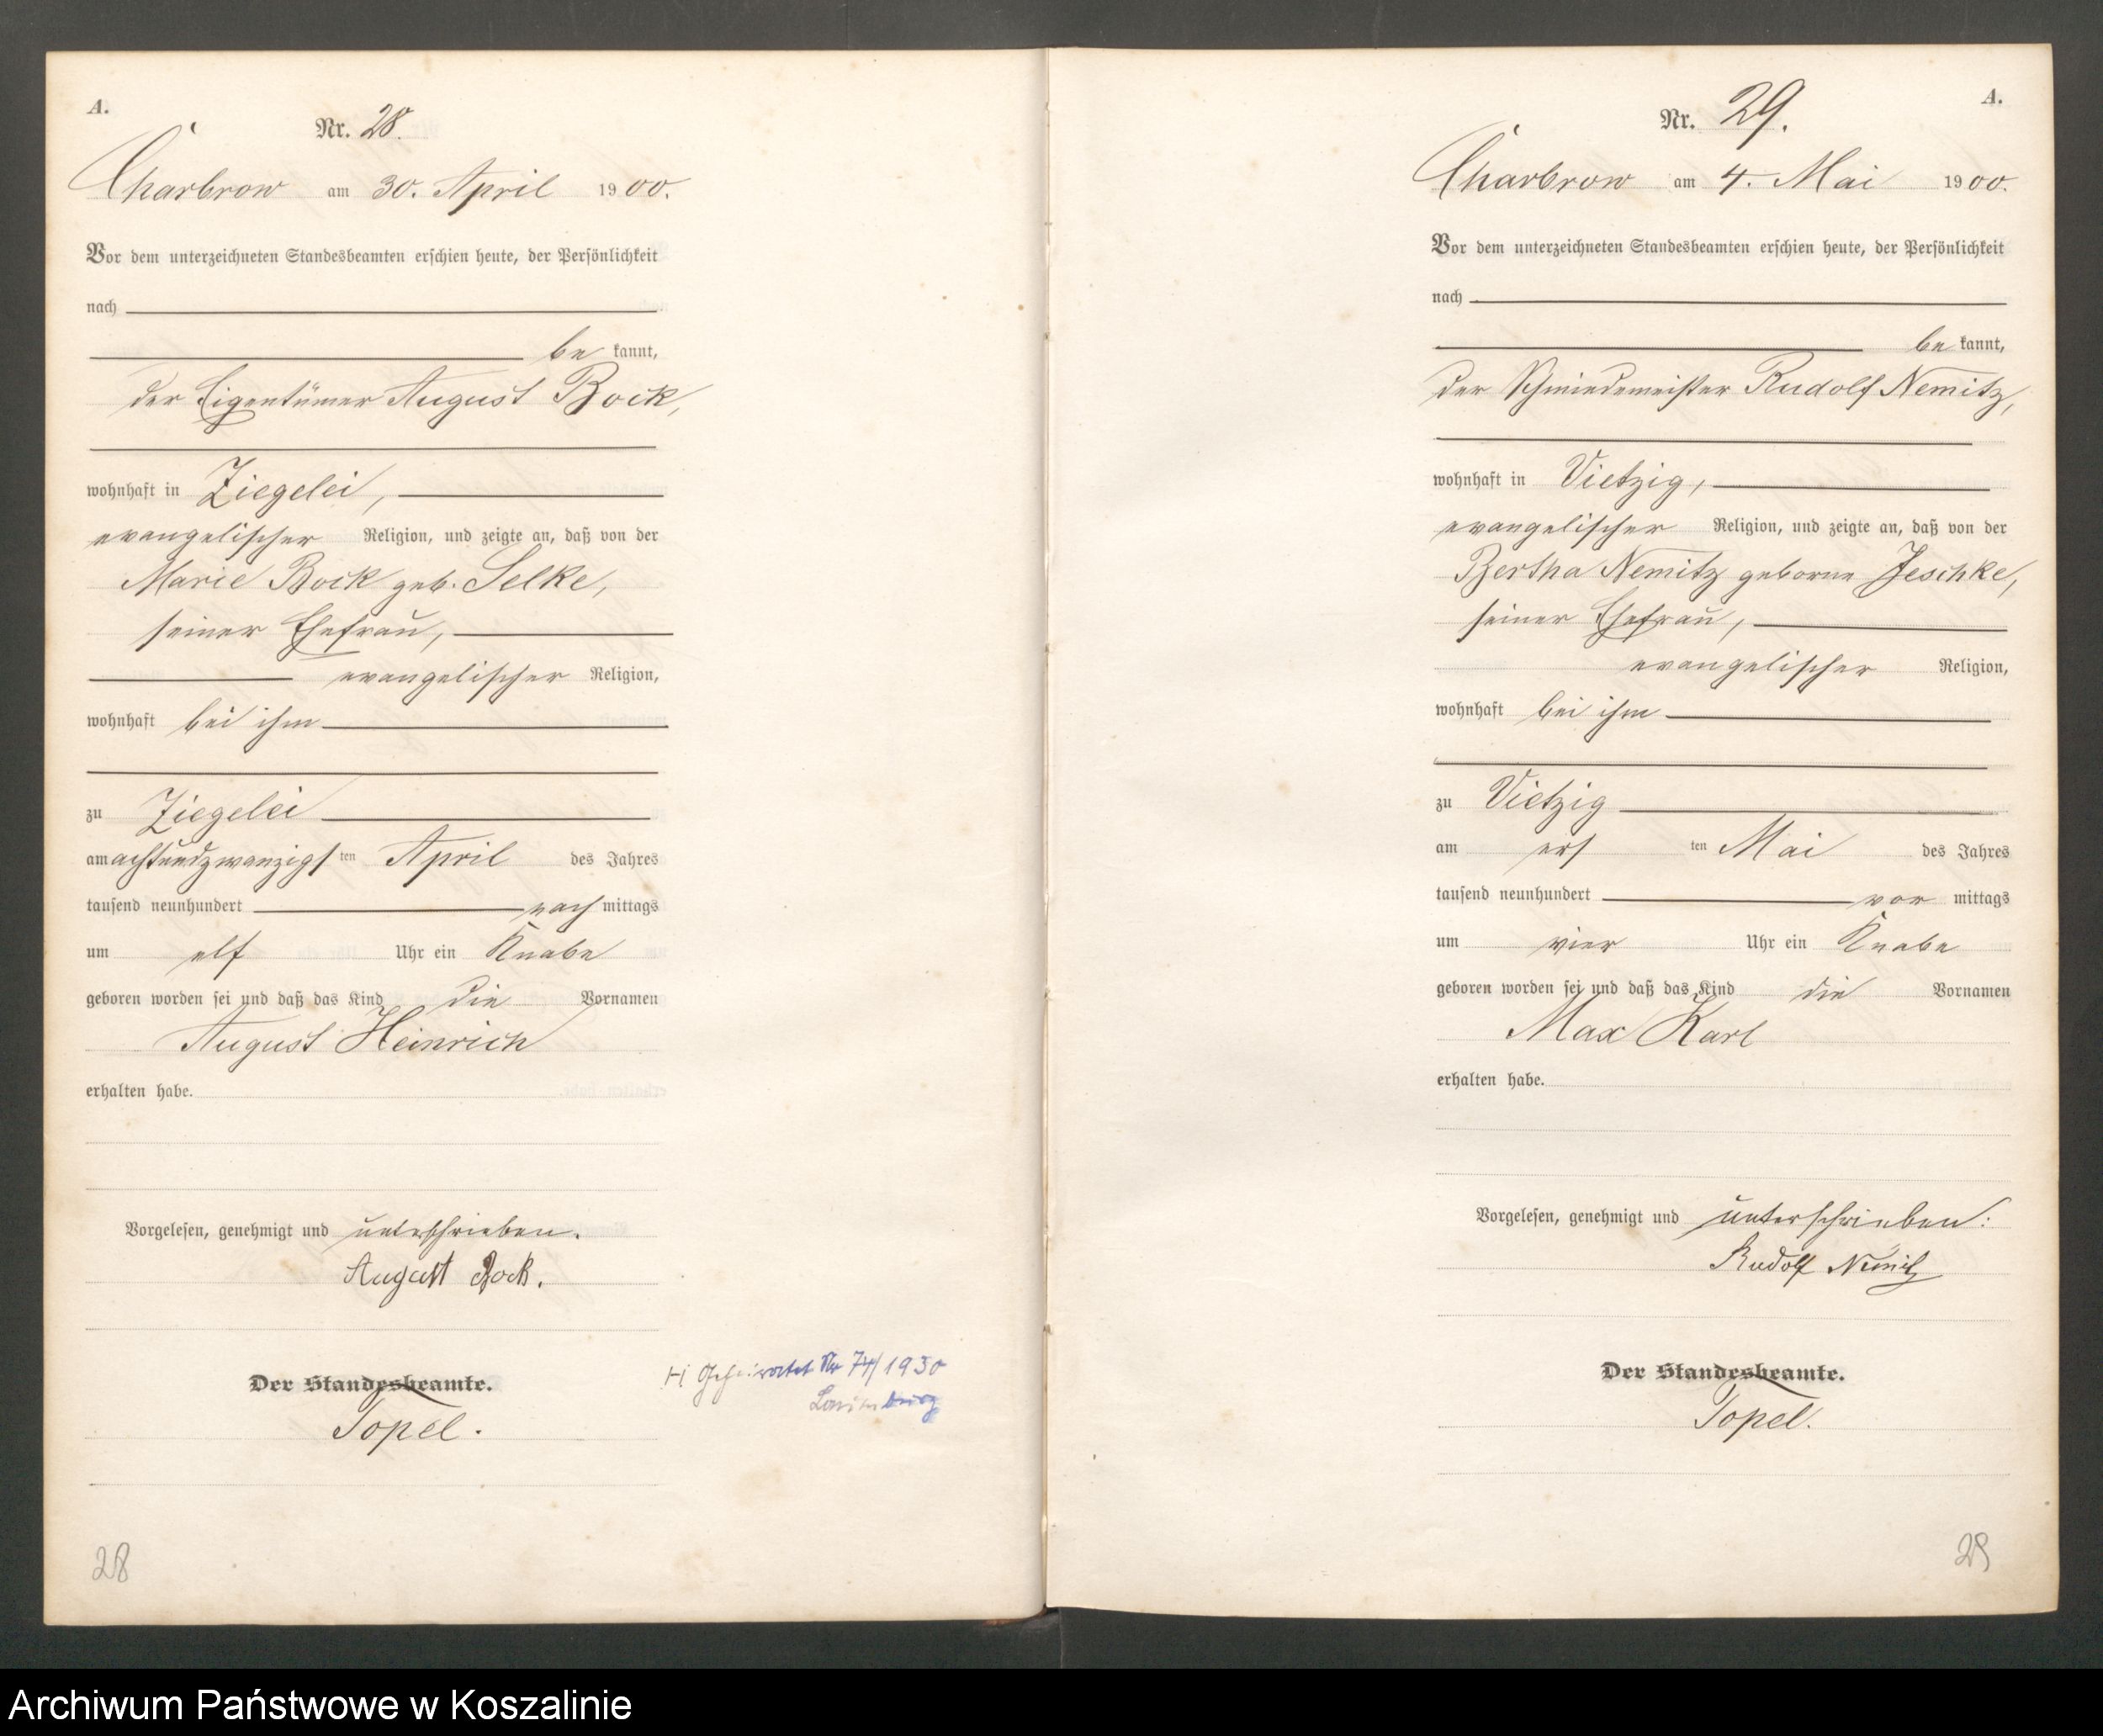 A.
Nr. 28.
Charbrow am 30. April 1900.
Vor dem unterzeichneten Standesbeamten erschien heute, der Persönlichkeit
nach
be kannt,
der Eigentümer August Bock,
wohnhaft in Ziegelei,
evangelischer Religion, und zeigte an, daß von der
Marie Bock geb. Selke,
seiner Ehefrau,
evangelischer Religion,
wohnhaft bei ihm
zu Ziegelei
am achtundzwanzigsten April des Jahres
tausend neunhundert nach mittags
um elf Uhr ein Knabe
geboren worden sei und daß das Kind die Vornamen
August Heinrich
erhalten habe.
Vorgelesen, genehmigt und unterschrieben.
August Bock.
Der Standesbeamte.
Topel.
Geheiratet Nr 74/1930
Lauenburg
28
A.
Nr. 29.
Charbrow am 4. Mai 1900.
Vor dem unterzeichneten Standesbeamten erschien heute, der Persönlichkeit
nach
be kannt,
der Schmiedemeister Rudolf Nemitz,
wohnhaft in Vietzig,
evangelischer Religion, und zeigte an, daß von der
Bertha Nemitz geborne Jeschke,
seiner Ehefrau,
evangelischer Religion,
wohnhaft bei ihm
zu Vietzig
am ersten Mai des Jahres
tausend neunhundert vor mittags
um vier Uhr ein Knabe
geboren worden sei und daß das Kind die Vornamen
Max Karl
erhalten habe.
Vorgelesen, genehmigt und unterschrieben:
Rudolf Nemitz
Der Standesbeamte.
Topel.
29
Archiwum Państwowe w Koszalinie